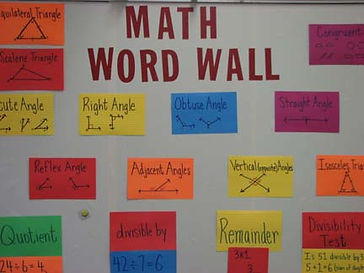 MATH
WORD WALL
quilateral Triangle
Scalene Triangle
Congruent
cute Angle
Right Angle
Obtuse Angle
Straight Angle
Reflex Angle
Adjacent Angles
Vertical (opposite) Angles
Isosceles Tria
Quotient
24÷6=4
divisible by
42÷7=6
Remainder
3
Divisibility
Test
Is 51 divisible by
5+1=6